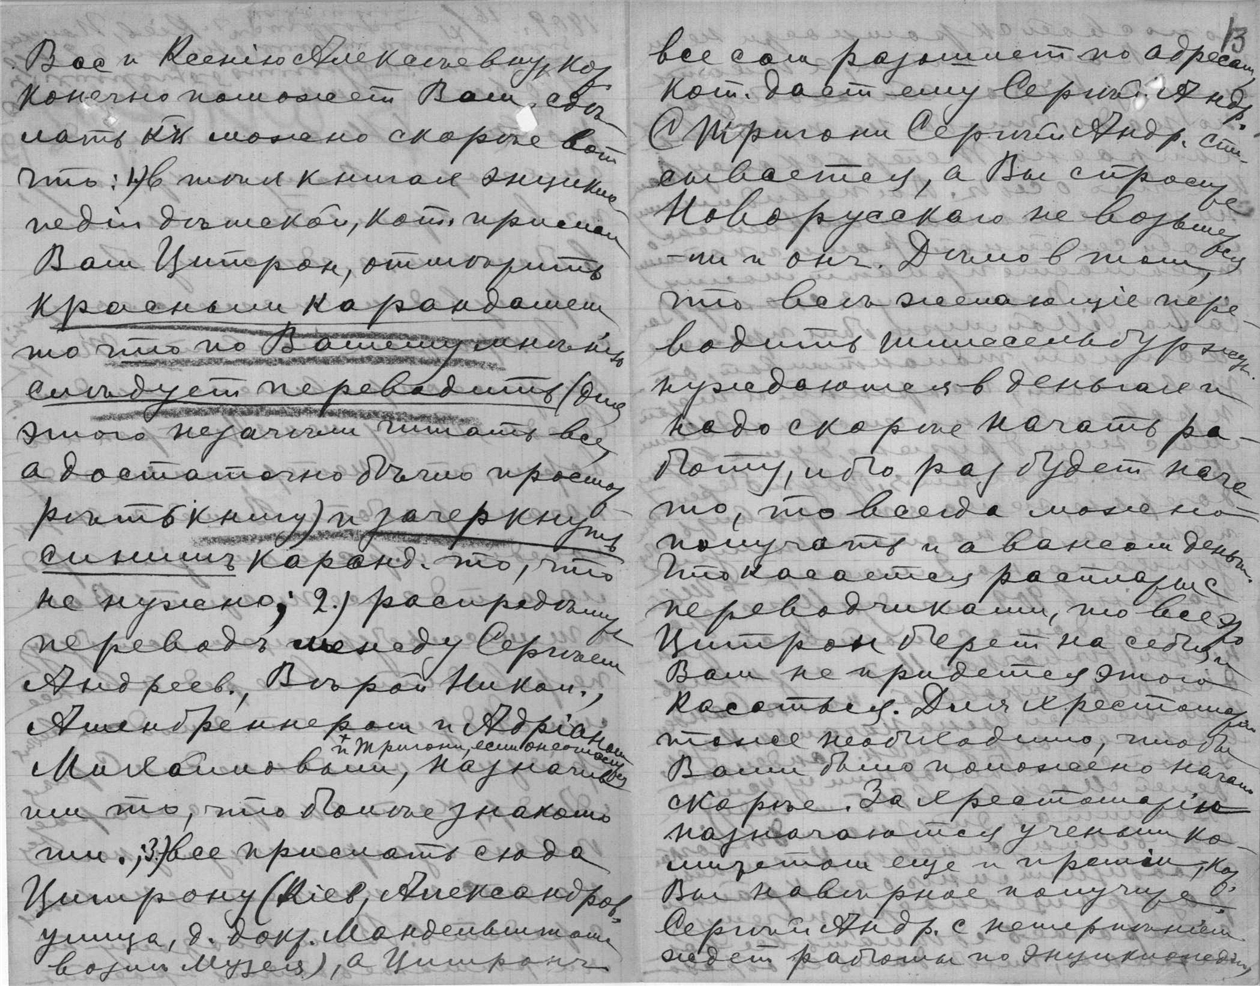 Вас и Ксенію Алексѣевну, коя
конечно поможетъ Вамъ сдѣ
лать кк можно скорѣе вотъ
что: 1) в тѣхъ книгахъ энцикло
педіи дѣтской, кот. прислалъ
Вамъ Цитрон, отмѣтить
краснымъ карандашемъ
то что по Вашему мнѣнію
слѣдует переводить (для
этого незачѣмъ читать все,
а достаточно бѣгло просмо
трѣть книгу) и зачеркнуть
синимъ каранд. то, что
не нужно; 2.) распредѣлить
переводъ между Сергѣемъ
Андреев., Вѣрой Никол.,
Ашенбреннером и Адріаномъ
и Тригони, если он согласится
Михайловымъ, назначив
им то, что болѣе знакомо
им.; 3.) все прислать сюда
Цитрону (Кіев, Александров.
улица, д. докт. Мандельштама
возлѣ Музея), а Цитронъ
13
все сам разошлет по адресам
кот. даст ему Сергѣй Андр.
С Тригони Сергѣй Андр. спи
сывается, а Вы спросите
Новорусскаго не возьмется
-ли и онъ. Дѣло в том,
что всѣ желающіе пере-
водить шлиссельбуржцы
нуждаются в деньгах и
надо скорѣе начать ра-
боту, ибо раз будет нача
то, то всегда можно
получать и авансом деньги
Что касается расплаты с
переводчиками, то все это
Цитрон берет на себя, и
Вам не придется этого
касаться. Для хрестоматіи
тоже необходимо, чтобы
Вами было положено начало
скорѣе. За хрестоматію
назначаются ученым ко-
митетом еще и преміи, коя
Вы навѣрное получите.
Сергѣй Андр. с нетерпѣніем
ждет работы по энциклопедіи,